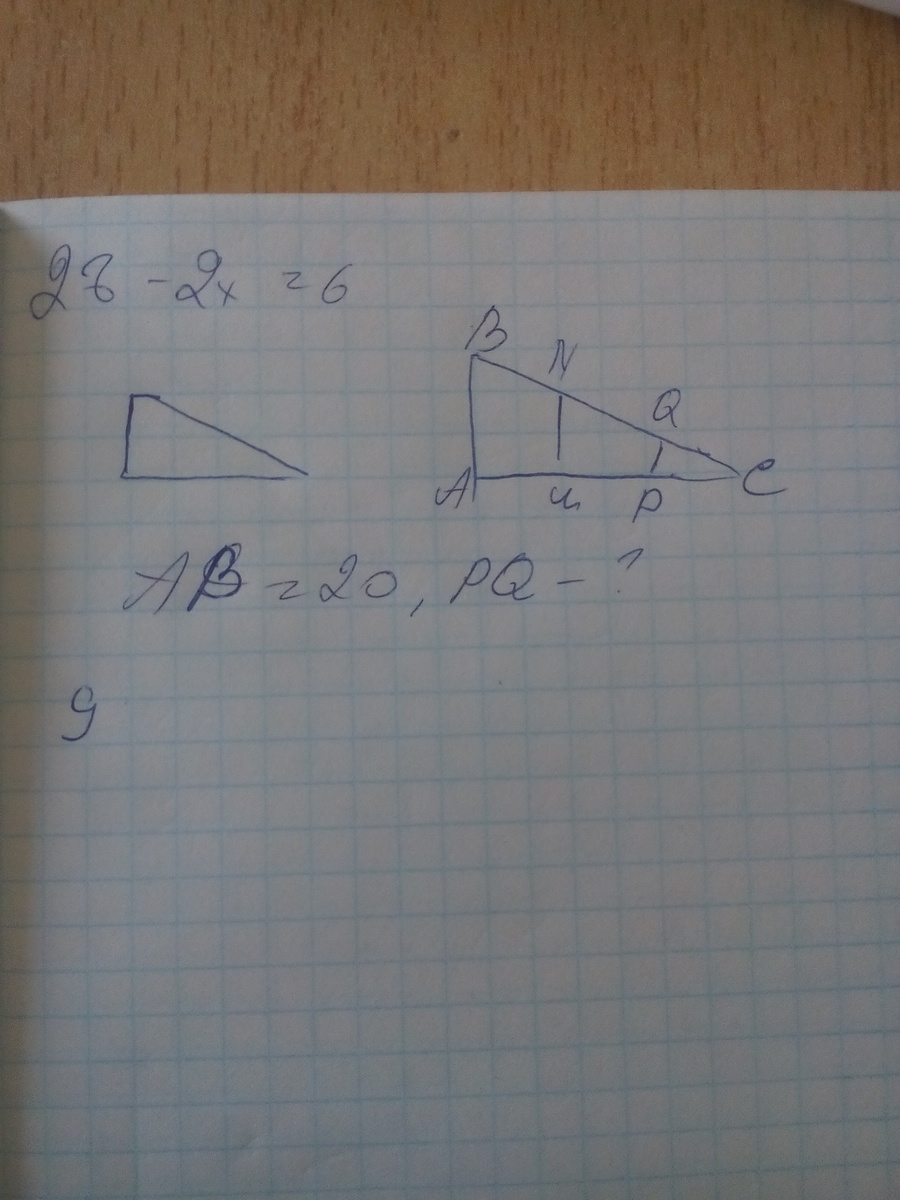 2z - 2x = 6
B N Q
A M P C
AB = 20, PQ - ?
9